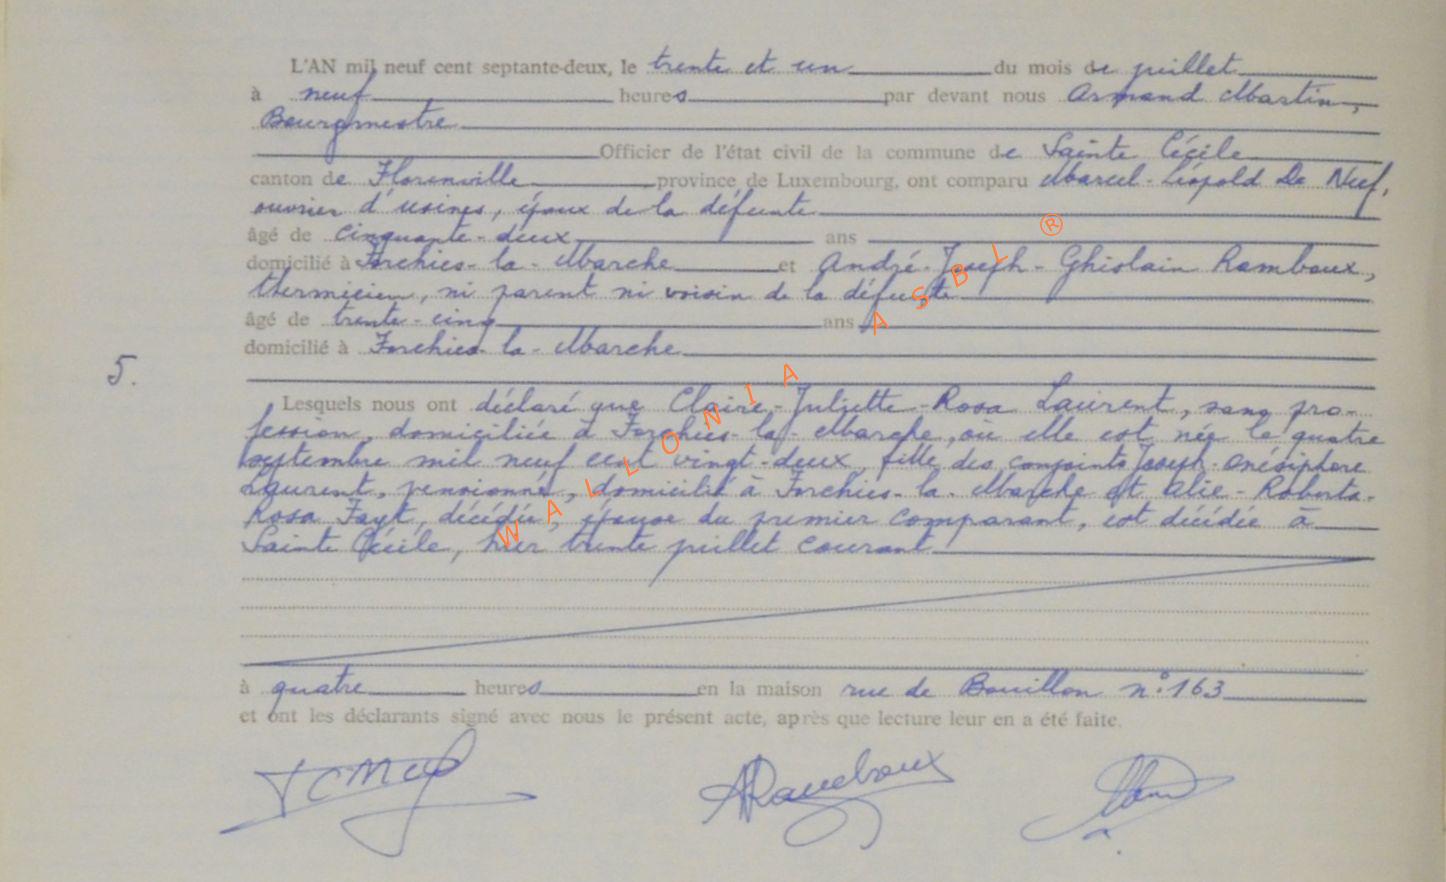 L'AN mil neuf cent septante-deux, le trente et un du mois de juillet
à neuf heures par devant nous Armand Martin,
Bourgmestre
Officier de l'état civil de la commune de Sainte Cécile
canton de Florenville province de Luxembourg, ont comparu Marcel-Léopold De Neuf,
ouvrier d'usines, époux de la défunte
âgé de cinquante-deux ans
domicilié à Forchies-la-Marche et André-Joseph-Ghislain Rambaux,
thermicien, ni parent ni voisin de la défunte
âgé de trente-cinq ans
domicilié à Forchies-la-Marche
5.
Lesquels nous ont déclaré que Claire-Juliette-Rosa Laurent, sans pro-
fession, domiciliée à Forchies-la-Marche, où elle est née le quatre
septembre mil neuf cent vingt-deux, fille des conjoints Joseph-Onésiphore
Laurent, pensionné, domicilié à Forchies-la-Marche et Alie-Roberta-
Rosa Fayt, décédée, épouse du premier comparant, est décédée à
Sainte Cécile, hier trente juillet courant
à quatre heures en la maison rue de Bouillon n° 163
et ont les déclarants signé avec nous le présent acte, après que lecture leur en a été faite.
ARambaux
WALLONIA ASBL ®